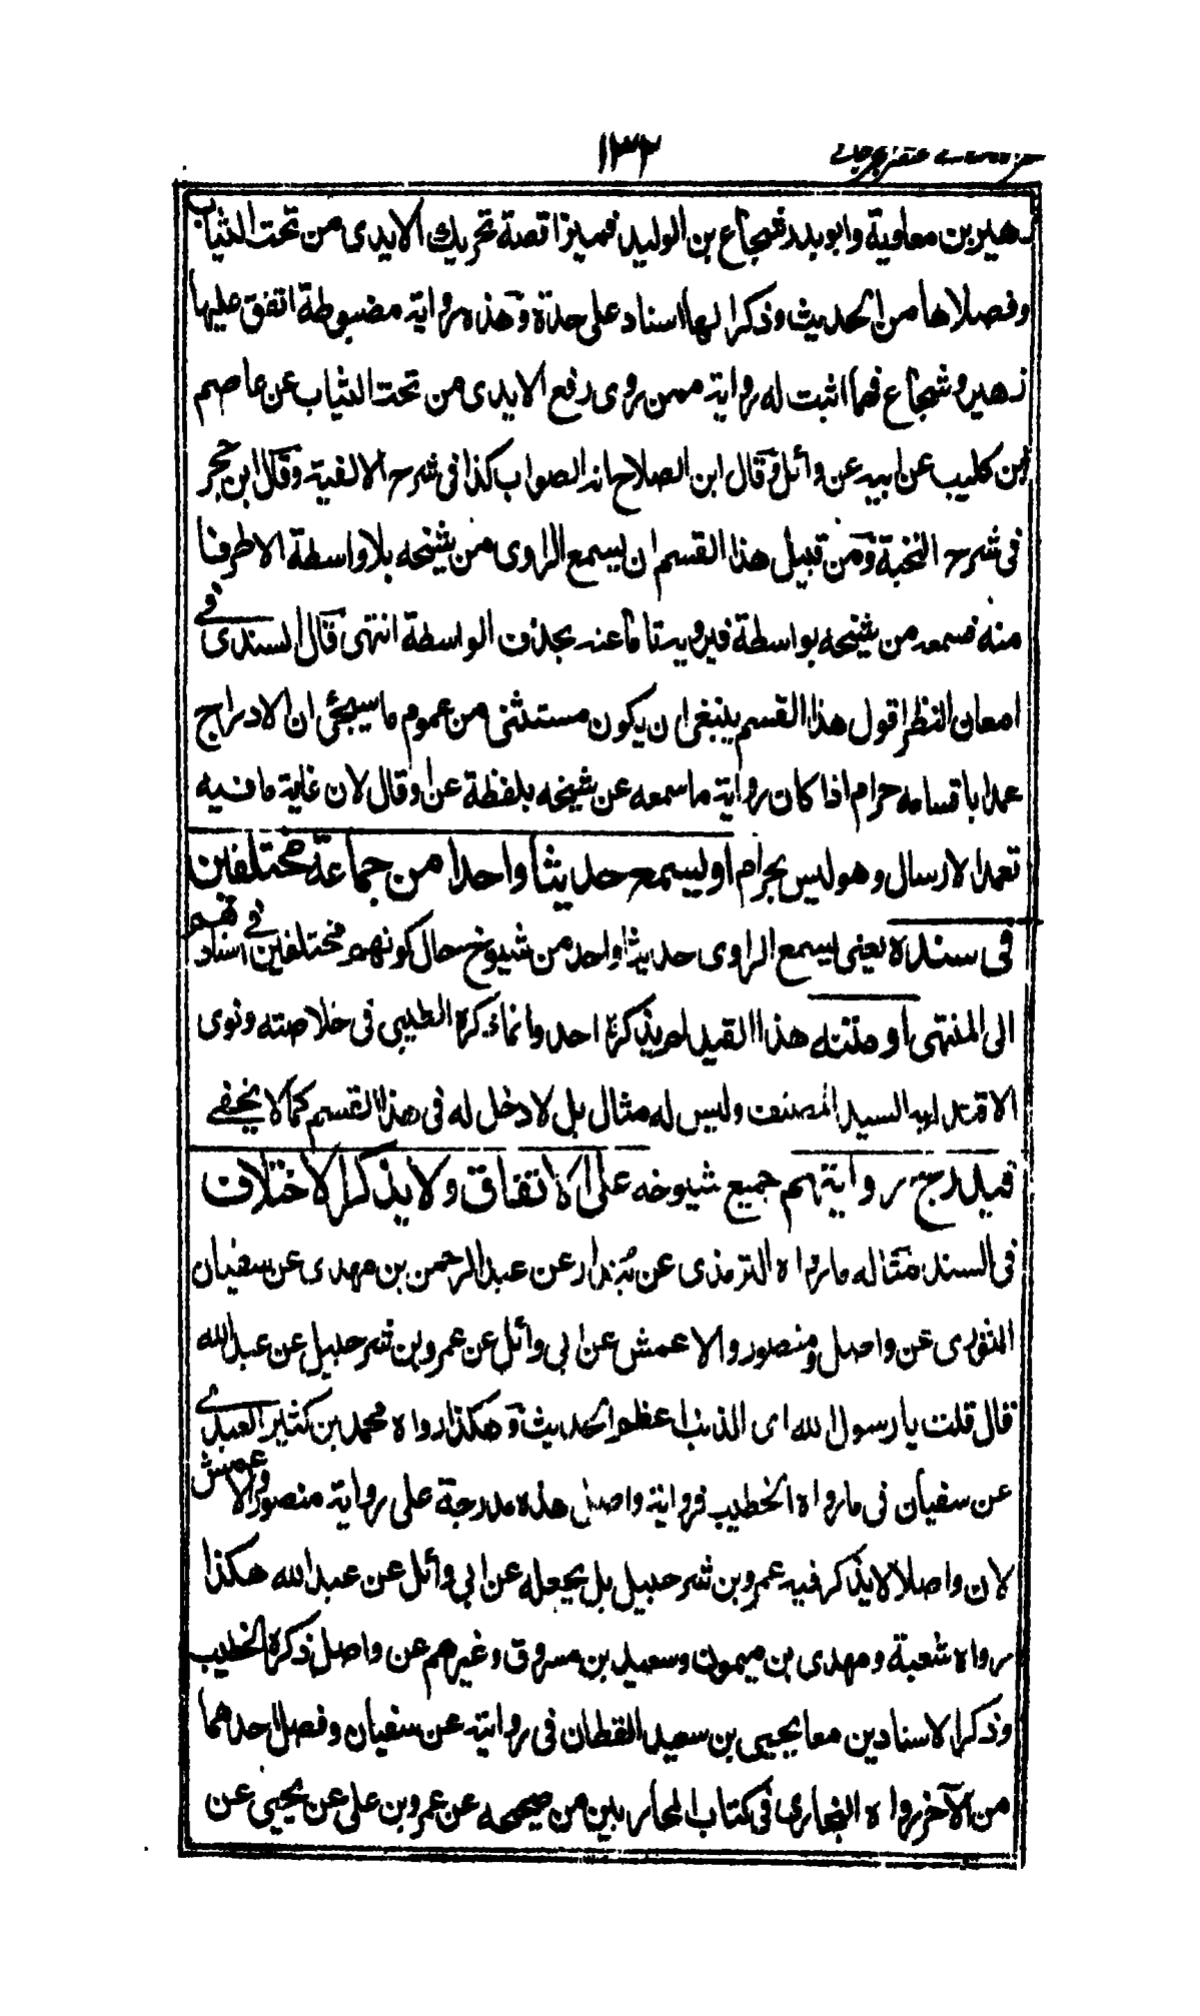 ١٣٢
زهير بن معاوية وابو بدر شجاع بن الوليد فميزا قصة تحريك الايدى من تحت الثياب
وفصلاها من الحديث وذكرا لها اسناد على حدة وهذه رواية مضبوطة اتفق عليها
زهير وشجاع فهما اثبت له رواية ممن روى رفع الايدى من تحت الثياب عن عاصم
ابن كليب عن ابيه عن وائل وقال ابن الصلاح انه الصواب كذا فى شرح الالفية وقال ابن حجر
فى شرح النخبة ومن قبيل هذا القسم ان يسمع الراوى من شيخه بلا واسطة الا طرفا
منه فسمعه من شيخه بواسطة فيرويه تاما عنه بحذف الواسطة انتهى قال السندى فى
امعان النظر اقول هذا القسم ينبغى ان يكون مستثنى من عموم ما سيجئ ان الادراج
عمدا باقسامه حرام اذا كان رواية ما سمعه عن شيخه بلفظة عن او قال لان غاية ما فيه
تعمد الارسال وهو ليس بحرام او ليسمع حديثا واحدا من جماعة مختلفين
فى سنده يعنى يسمع الراوى حديثا واحد من شيوخ حال كونهم مختلفين فى اسناد تهم
الى المنتهى او متنه هذا القيد لم يذكره احد وانما ذكره الطيبى فى خلاصته ونوى
الاقتداء به السيد المصنف وليس له مثال بل لا دخل له فى هذا القسم كما لا يخفى
فيدرج روايتهم جميع شيوخه على الاتفاق ولا يذكر الاختلاف
فى السند مثاله ما رواه الترمذى عن بندار عن عبد الرحمن بن مهدى عن سفيان
الثورى عن واصل ومنصور والاعمش عن ابى وائل عن عمرو بن شرحبيل عن عبد الله
قال قلت يا رسول الله اى الذنب اعظم الحديث وهكذا رواه محمد بن كثير العبدى
عن سفيان فى ما رواه الخطيب فرواية واصل هذه مدرجة على رواية منصور والاعمش
لان واصلا لا يذكر فيه عمرو بن شرحبيل بل يجعله عن ابى وائل عن عبد الله هكذا
رواه شعبة ومهدى بن ميمون وسعيد بن مسروق وغيرهم عن واصل ذكره الخطيب
وذكر الاسنادين معا يحيى بن سعيد القطان فى روايته عن سفيان وفصل احدهما
من الآخر رواه البخارى فى كتاب المحاربين من صحيحه عن عمرو بن على عن يحيى عن